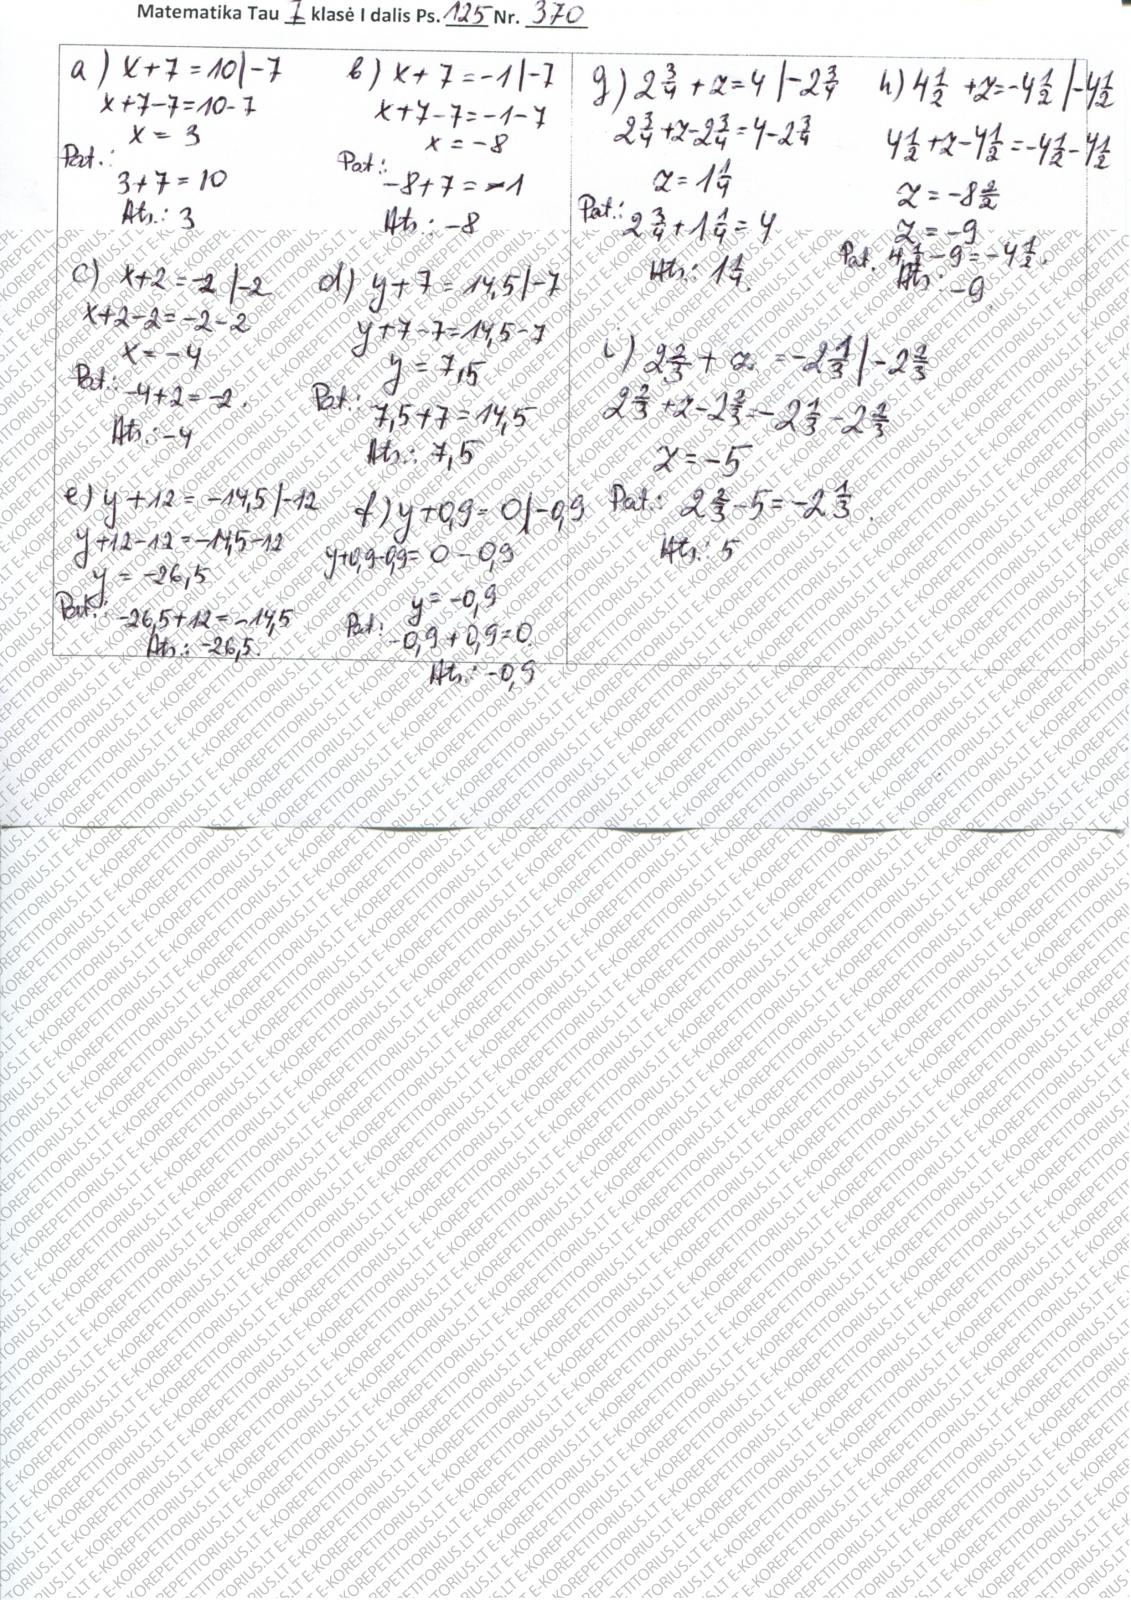 Matematika Tau 7 klasė I dalis Ps. 125 Nr. 370
a) x+7=10|-7
x+7-7=10-7
x = 3
Pat.:
3+7=10
Ats.: 3
b) x+7=-1|-7
x+7-7=-1-7
x=-8
Pat.:
-8+7=-1
Ats.: -8
c) x+2=-2|-2
x+2-2=-2-2
x=-4
Pat.: -4+2=-2.
Ats.: -4
d) y+7=14,5|-7
y+7-7=14,5-7
y=7,5
Pat.:
7,5+7=14,5
Ats.: 7,5
e) y+12=-14,5|-12
y+12-12=-14,5-12
y=-26,5
Pat.: -26,5+12=-14,5
Ats.: -26,5.
f) y+0,9=0|-0,9
y+0,9-0,9=0-0,9
y=-0,9
Pat:
-0,9+0,9=0
Ats.: -0,9
g) 2 3/4 + z=4 |-2 3/4
2 3/4 +z-2 3/4=4-2 3/4
z=1 1/4
Pat.:
2 3/4+1 1/4=4
Ats: 1 1/4.
h) 4 1/2 +z=-4 1/2 |-4 1/2
4 1/2+z-4 1/2=-4 1/2-4 1/2
z=-8 2/2
z=-9
Pat. 4 1/2-9=-4 1/2.
Ats: -9
i) 2 2/3 + z = -2 1/3 |-2 2/3
2 2/3 +z-2 2/3=-2 1/3-2 2/3
z=-5
Pat.: 2 2/3-5=-2 1/3.
Ats.: 5
E-KOREPETITORIUS.LT